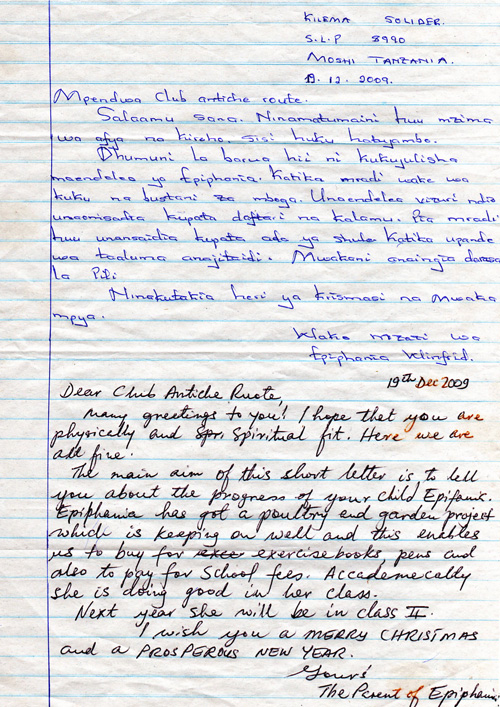 KILEMA SOLIDER.
S.L.P 8990
MOSHI TANZANIA.
19.12.2009.
Mpendwa Club antiche route.
Salaamu sana. Ninamatumaini huu mzima
wa afya na kiroho. sisi huku hatujambo.
Dhumuni la barua hii ni kukujulisha
maendeleo ya Epiphania. Katika mradi wake wa
kuku na bustani za mboga. Unaendelea vizuri ndio
unaomsaidia kupata daftari na kalamu. Pia mradi
huu unansaidia kupata ada ya shule Katika upande
wa taaluma anajitaidi. Mwakani anaingia darasa
la Pili
Ninakutakia heri ya krismasi na mwaka
mpya.
Wako mzazi wa
Epiphania Winfrid.
19th Dec 2009
Dear Club Antiche Ruote,
Many greetings to you! I hope that you are
physically and Spr. Spiritual fit. Here we are
all fine.
The main aim of this short letter is to tell
you about the progress of your child Epifania.
Epiphania has got a poultry and garden project
which is keeping on well and this enables
us to buy for exce exercisebooks, pens and
also to pay for School fees. Accademecally
she is doing good in her class.
Next year she will be in class II.
I wish you a MERRY CHRISTMAS
and a PROSPEROUS NEW YEAR.
Yours'
The Parent of Epiphania.